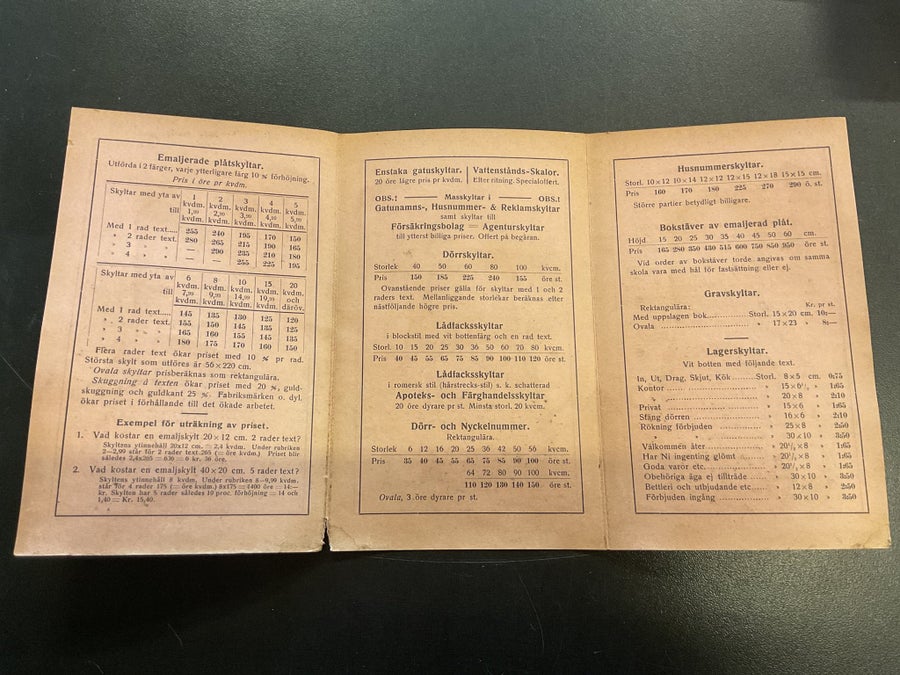 Emaljerade plåtskyltar.
Utförda i 2 färger, varje ytterligare färg 10 % förhöjning.
Pris i öre pr kvdm.
Skyltar med yta av 1 2 3 4 5
kvdm. kvdm. kvdm. kvdm. kvdm.
till 1,99 2,99 3,99 4,99 5,99
kvdm. kvdm. kvdm. kvdm. kvdm.
Med 1 rad text.... 255 240 195 170 150
» 2 rader text. 280 265 215 190 165
» 3 » » — 290 235 210 180
» 4 » » — — 255 225 195
Skyltar med yta av 6 8 10 15 20
kvdm. kvdm. kvdm. kvdm. kvdm.
till 7,99 9,99 14,99 19,99 och
kvdm. kvdm. kvdm. kvdm. däröv.
Med 1 rad text..... 145 135 130 125 120
» 2 rader text. 155 150 145 135 125
» 3 » » 165 160 155 145 135
» 4 » » 180 175 170 160 150
Flera rader text ökar priset med 10 % pr rad.
Största skylt som utföres är 56×220 cm.
Ovala skyltar prisberäknas som rektangulära.
Skuggning å texten ökar priset med 20 %, guld-
skuggning och guldkant 25 %. Fabriksmärken o. dyl.
ökar priset i förhållande till det ökade arbetet.
Exempel för uträkning av priset.
1. Vad kostar en emaljskylt 20×12 cm. 2 rader text?
Skyltens ytinnehåll 20x12 cm. = 2,4 kvdm. Under rubriken
2—2,99 står för 2 rader text 265 (= öre kvdm.) Priset blir
således 2,4x265 = 636 = 6 kr. 36 öre.
2. Vad kostar en emaljskylt 40×20 cm. 5 rader text?
Skyltens ytinnehåll 8 kvdm. Under rubriken 8—9,99 kvdm.
står för 4 rader 175 (= öre kvdm.) 8x175 = 1400 öre = 14:—
kr. Skylten har 5 rader således 10 proc. förhöjning = 14 och
1,40 = Kr. 15,40.
Enstaka gatuskyltar.
20 öre lägre pris pr kvdm.
Vattenstånds-Skalor.
Efter ritning. Specialoffert.
OBS.! Masskyltar i OBS.!
Gatunamns-, Husnummer- & Reklamskyltar
samt skyltar till
Försäkringsbolag = Agenturskyltar
till ytterst billiga priser. Offert på begäran.
Dörrskyltar.
Storlek 40 50 60 80 100 kvcm.
Pris 150 185 225 240 155 öre st.
Ovanstående priser gälla för skyltar med 1 och 2
raders text. Mellanliggande storlekar beräknas efter
nästföljande högre pris.
Lådfacksskyltar
i blockstil med vit bottenfärg och en rad text.
Storl. 10 15 20 25 30 36 50 60 70 80 kvcm.
Pris 40 45 55 65 75 85 90 100 110 120 öre st.
Lådfacksskyltar
i romersk stil (hårstrecks-stil) s. k. schatterad
Apoteks- och Färghandelsskyltar
20 öre dyrare pr st. Minsta storl. 20 kvcm.
Dörr- och Nyckelnummer.
Rektangulära.
Storlek 6 12 16 20 25 36 42 50 56 kvcm.
Pris 35 40 45 55 65 75 85 90 100 öre st.
64 72 80 90 100 kvcm.
110 120 130 140 150 öre st.
Ovala, 3 öre dyrare pr st.
Husnummerskyltar.
Storl. 10×12 10×14 12×12 12×15 12×18 15×15 cm.
Pris 160 170 180 225 270 290 ö. st.
Större partier betydligt billigare.
Bokstäver av emaljerad plåt.
Höjd 15 20 25 30 35 40 45 50 60 cm.
Pris 165 280 350 430 515 600 750 850 950 öre st.
Vid order av bokstäver torde angivas om samma
skola vara med hål för fastsättning eller ej.
Gravskyltar.
Rektangulära: Kr. pr st.
Med uppslagen bok............Storl. 15×20 cm. 10:—
Ovala ........................... » 17×23 » 8:—
Lagerskyltar.
Vit botten med följande text.
In, Ut, Drag, Skjut, Kök......Storl. 8×5 cm. 0:75
Kontor ........................... » 15×6½ » 1:65
» ........................... » 20×8 » 2:10
Privat ........................... » 15×6 » 1:65
Stäng dörren .................. » 16×6 » 2:10
Rökning förbjuden ............ » 25×8 » 2:50
» » ............ » 30×10 » 3:50
Välkommen åter............... » 20½×8 » 1:65
Har Ni ingenting glömt ...... » 20½×8 » 1:65
Goda varor etc.................. » 20½×8 » 1:65
Obehöriga äga ej tillträde ... » 30×10 » 3:50
Bettleri och utbjudande etc... » 12×8 » 2:50
Förbjuden ingång ............ » 30×10 » 3:50